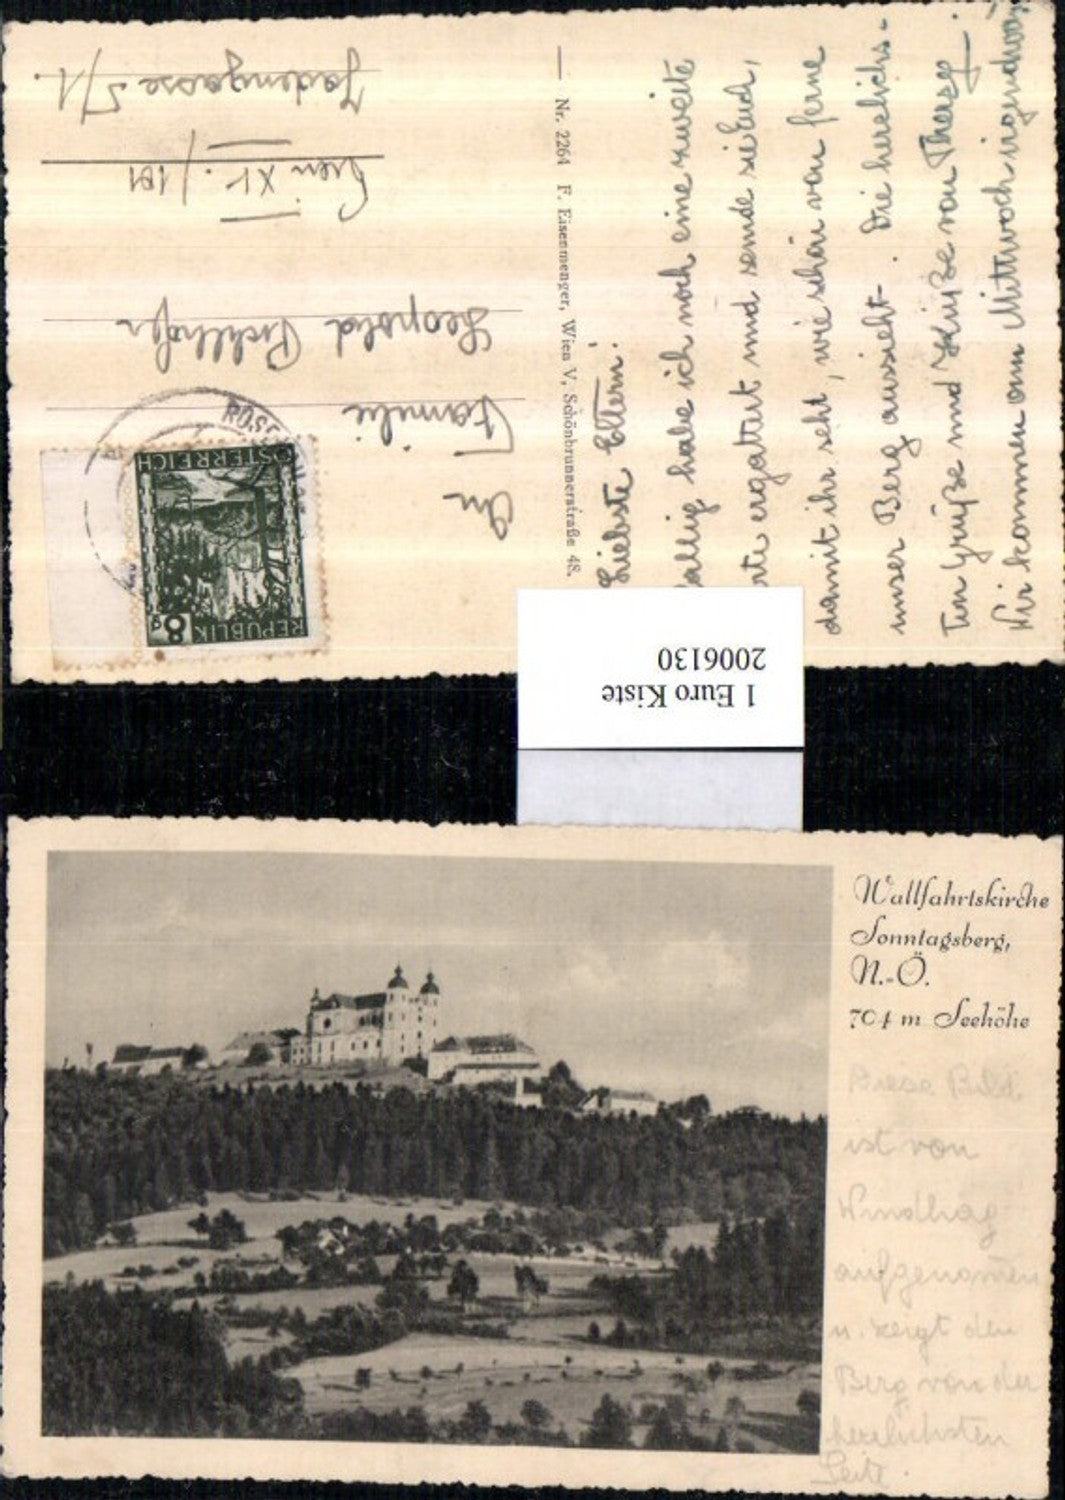 Liebste Eltern!
habe ich noch eine zweite
ergattert und sende sie Euch,
damit ihr seht, wie schön von ferne
unser Berg aussieht. Die herzlichs-
ten Grüße und Küße von Theres
Wir kommen am Mittwoch irgendwas
— Nr. 2264 F. Eisenmenger, Wien V, Schönbrunnerstraße 48.
An
Familie
Leopold
Wien XV./101
5/1.
REPUBLIK
8g
ÖSTERREICH
1 Euro Kiste
2006130
Wallfahrtskirche
Sonntagsberg,
N.-Ö.
704 m Seehöhe
Diese Bild
ist von
Windhag
aufgenomen
u. zeigt den
Berg von der
herrlichsten
Seite.